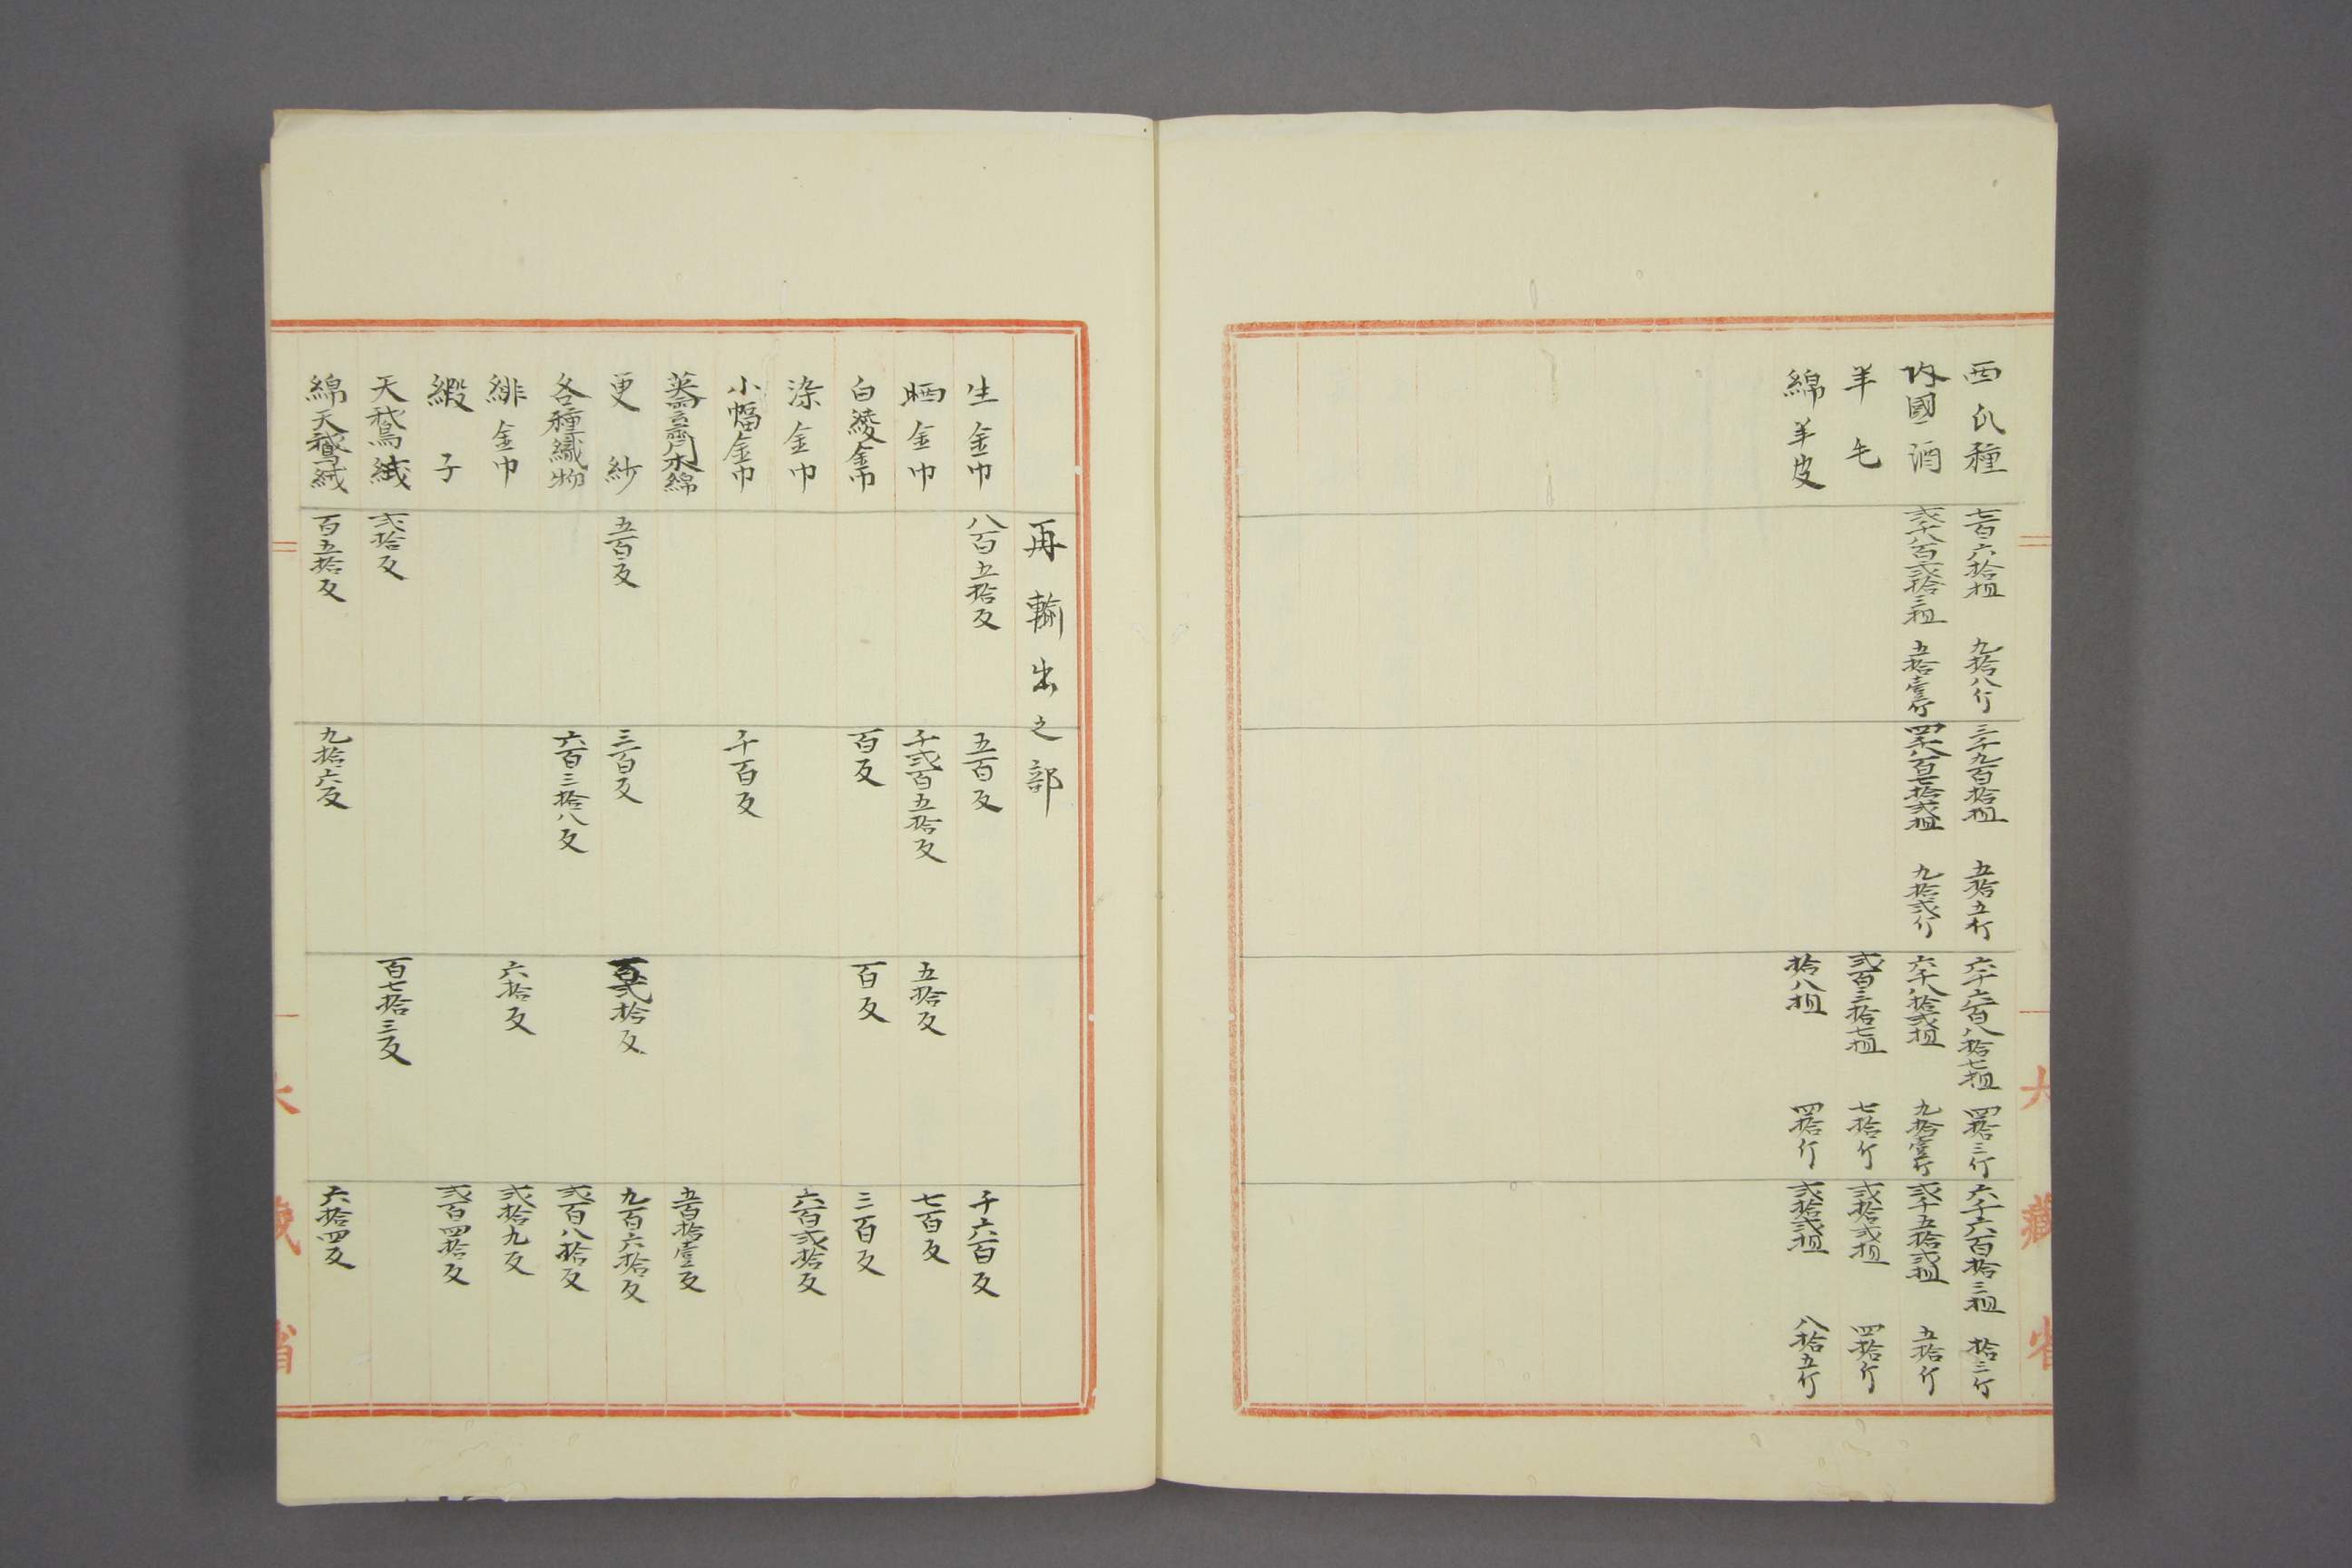 西瓜種 七百六拾担 九拾八斤 三千九百拾担 五拾五斤 六千六百八拾七担 四拾三斤 六千六百拾三担 拾三斤
内國酒 弐千八百弐拾三担 五拾壹斤 四千八百七拾弐担 九拾弐斤 六千八拾弐担 九拾壹斤 弐千五拾弐担 五拾斤
羊毛 弐百三拾七担 七拾斤 弐拾弐担 四拾斤
綿羊皮 拾八担 四拾斤 弐拾弐担 八拾五斤
大藏省
再輸出之部
生金巾 八百五拾反 五百反 千六百反
晒金巾 千弐百五拾反 五拾反 七百反
白綾金巾 百反 百反 三百反
染金巾 六百弐拾反
小幅金巾 千百反
蕎麦形木綿 五百拾壹反
更紗 五百反 三百反 百弐拾反 九百六拾反
各種織物 六百三拾八反 弐百八拾反
緋金巾 六拾反 弐拾九反
緞子 弐百四拾反
天鵞絨 弐拾反 百七拾三反
綿天鵞絨 百五拾反 九拾六反 六拾四反